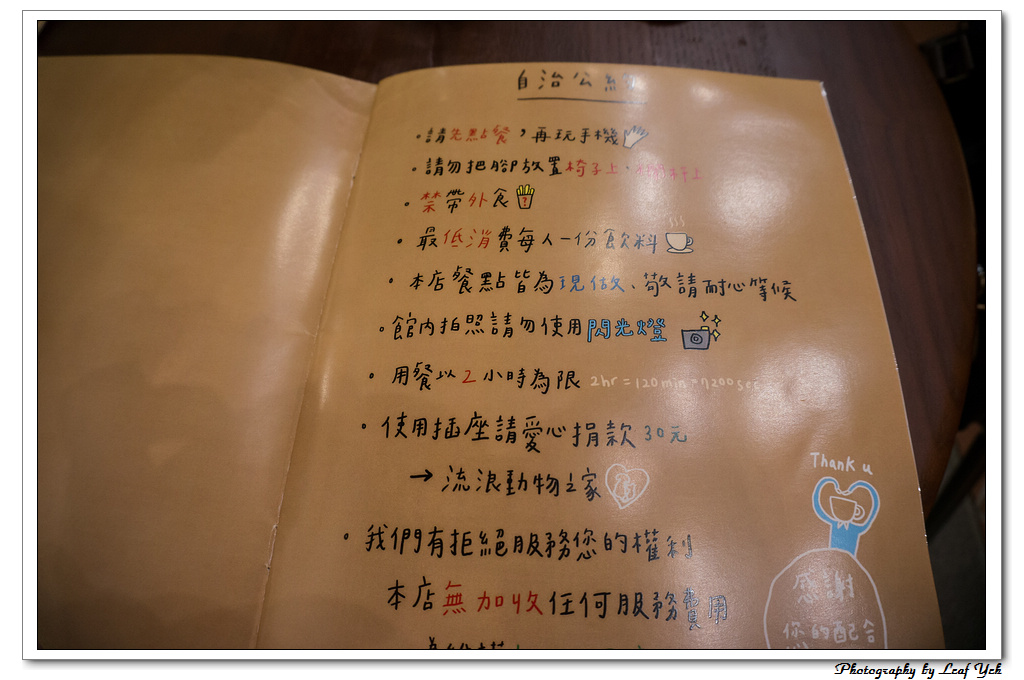 自治公約
·請先點餐，再玩手機
·請勿把腳放置椅子上、杆上
·禁帶外食
·最低消費每人一份飲料
·本店餐點皆為現做、敬請耐心等候
·館內拍照請勿使用閃光燈
·用餐以2小時為限 2hr=120min=7200sec
·使用插座請愛心捐款30元
→流浪動物之家
·我們有拒絕服務您的權利
本店無加收任何服務費用
Thank u
感謝
您的配合
Photography by Leaf Yeh